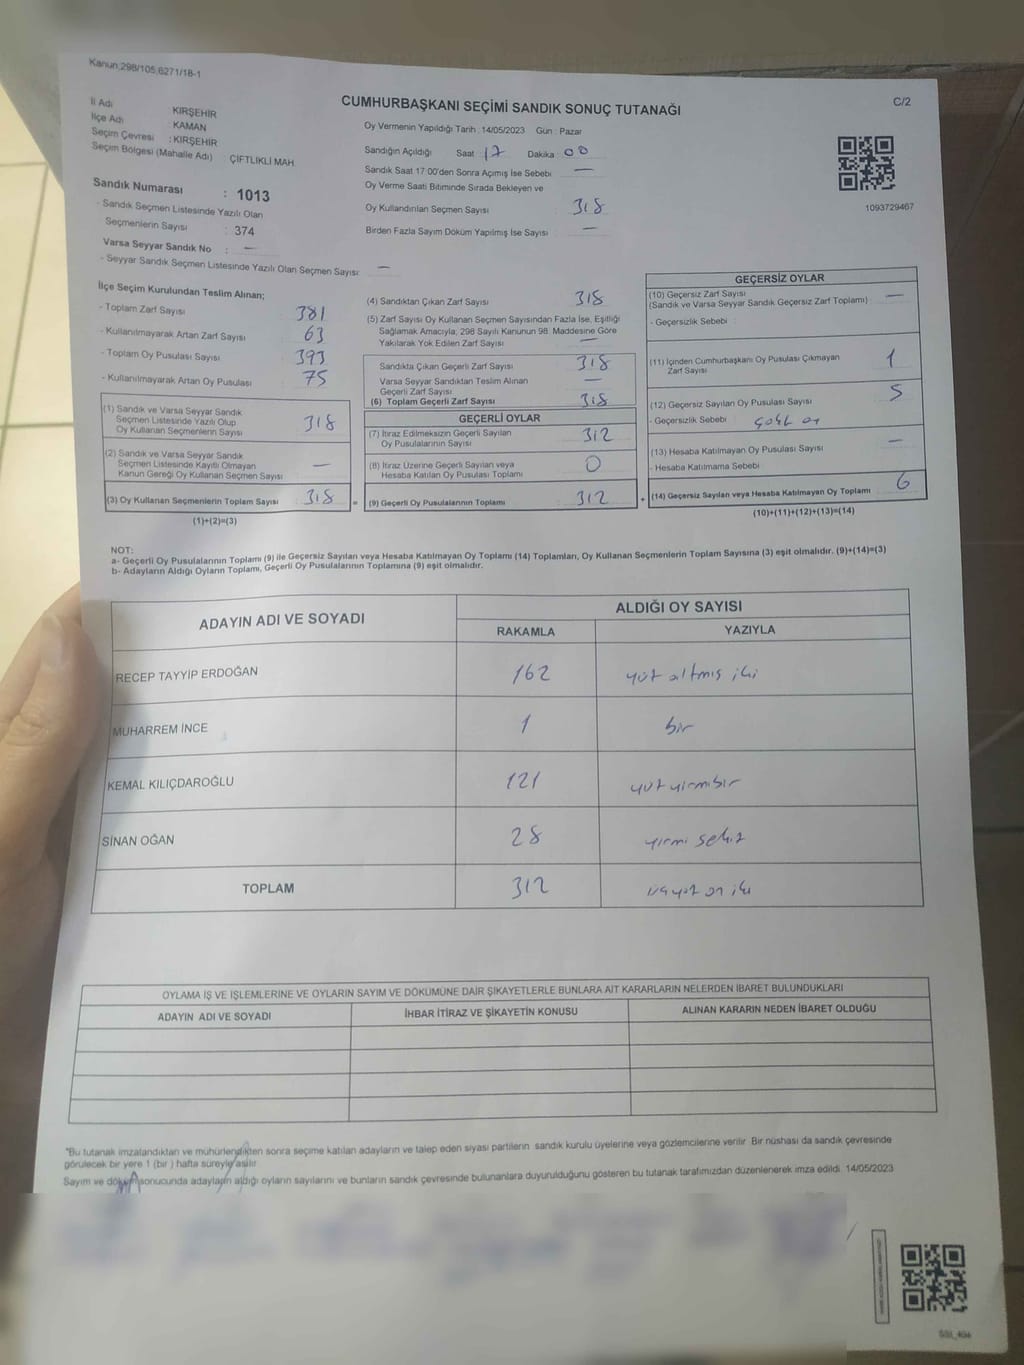 Kanun;298/105,6271/18-1
C/2
CUMHURBAŞKANI SEÇİMİ SANDIK SONUÇ TUTANAĞI
İl Adı KIRŞEHİR
İlçe Adı KAMAN
Seçim Çevresi : KIRŞEHİR
Seçim Bölgesi (Mahalle Adı) : ÇİFTLİKLİ MAH.
Sandık Numarası : 1013
- Sandık Seçmen Listesinde Yazılı Olan
Seçmenlerin Sayısı : 374
Varsa Seyyar Sandık No : —
- Seyyar Sandık Seçmen Listesinde Yazılı Olan Seçmen Sayısı: —
Oy Vermenin Yapıldığı Tarih : 14/05/2023 Gün : Pazar
Sandığın Açıldığı Saat 17 Dakika 00
Sandık Saat 17 00'den Sonra Açımış İse Sebebi —
Oy Verme Saati Bitiminde Sırada Bekleyen ve
Oy Kullandırılan Seçmen Sayısı 318
Birden Fazla Sayım Döküm Yapılmış İse Sayısı —
1093729467
İlçe Seçim Kurulundan Teslim Alınan;
- Toplam Zarf Sayısı 381
- Kullanılmayarak Artan Zarf Sayısı 63
- Toplam Oy Pusulası Sayısı 393
- Kullanılmayarak Artan Oy Pusulası 75
(1) Sandık ve Varsa Seyyar Sandık
Seçmen Listesinde Yazılı Olup
Oy Kullanan Seçmenlerin Sayısı 318
(2) Sandık ve Varsa Seyyar Sandık
Seçmen Listesinde Kayıtlı Olmayan
Kanun Gereği Oy Kullanan Seçmen Sayısı —
(3) Oy Kullanan Seçmenlerin Toplam Sayısı 318 =
(1)+(2)=(3)
(4) Sandıktan Çıkan Zarf Sayısı 318
(5) Zarf Sayısı Oy Kullanan Seçmen Sayısından Fazla İse, Eşitliği
Sağlamak Amacıyla, 298 Sayılı Kanunun 98. Maddesine Göre
Yakılarak Yok Edilen Zarf Sayısı —
Sandıkta Çıkan Geçerli Zarf Sayısı 318
Varsa Seyyar Sandıktan Teslim Alınan
Geçerli Zarf Sayısı —
(6) Toplam Geçerli Zarf Sayısı 318
GEÇERLİ OYLAR
(7) İtiraz Edilmeksizin Geçerli Sayılan
Oy Pusulalarının Sayısı 312
(8) İtiraz Üzerine Geçerli Sayılan veya
Hesaba Katılan Oy Pusulası Toplamı 0
(9) Geçerli Oy Pusulalarının Toplamı 312 +
GEÇERSİZ OYLAR
(10) Geçersiz Zarf Sayısı
(Sandık ve Varsa Seyyar Sandık Geçersiz Zarf Toplamı) —
- Geçersizlik Sebebi :
(11) İçinden Cumhurbaşkanı Oy Pusulası Çıkmayan
Zarf Sayısı 1
(12) Geçersiz Sayılan Oy Pusulası Sayısı 5
- Geçersizlik Sebebi :
(13) Hesaba Katılmayan Oy Pusulası Sayısı —
- Hesaba Katılmama Sebebi
(14) Geçersiz Sayılan veya Hesaba Katılmayan Oy Toplamı 6
(10)+(11)+(12)+(13)=(14)
NOT:
a- Geçerli Oy Pusulalarının Toplamı (9) ile Geçersiz Sayılan veya Hesaba Katılmayan Oy Toplamı (14) Toplamları, Oy Kullanan Seçmenlerin Toplam Sayısına (3) eşit olmalıdır. (9)+(14)=(3)
b- Adayların Aldığı Oyların Toplamı, Geçerli Oy Pusulalarının Toplamına (9) eşit olmalıdır.
ADAYIN ADI VE SOYADI ALDIĞI OY SAYISI
RAKAMLA YAZIYLA
RECEP TAYYİP ERDOĞAN 162 yüz altmış iki
MUHARREM İNCE 1 bir
KEMAL KILIÇDAROĞLU 121 yüz yirmi bir
SİNAN OĞAN 28 yirmi sekiz
TOPLAM 312 üçyüz on iki
OYLAMA İŞ VE İŞLEMLERİNE VE OYLARIN SAYIM VE DÖKÜMÜNE DAİR ŞİKAYETLERLE BUNLARA AİT KARARLARIN NELERDEN İBARET BULUNDUKLARI
ADAYIN ADI VE SOYADI İHBAR İTİRAZ VE ŞİKAYETİN KONUSU ALINAN KARARIN NEDEN İBARET OLDUĞU
"Bu tutanak imzalandıktan ve mühürlendikten sonra seçime katılan adayların ve talep eden siyasi partilerin sandık kurulu üyelerine veya gözlemcilerine verilir. Bir nüshası da sandık çevresinde
görülecek bir yere 1 (bir ) hafta süreyle asılır.
Sayım ve döküm sonucunda adayların aldığı oyların sayılarını ve bunların sandık çevresinde bulunanlara duyurulduğunu gösteren bu tutanak tarafımızdan düzenlenerek imza edildi. 14/05/2023